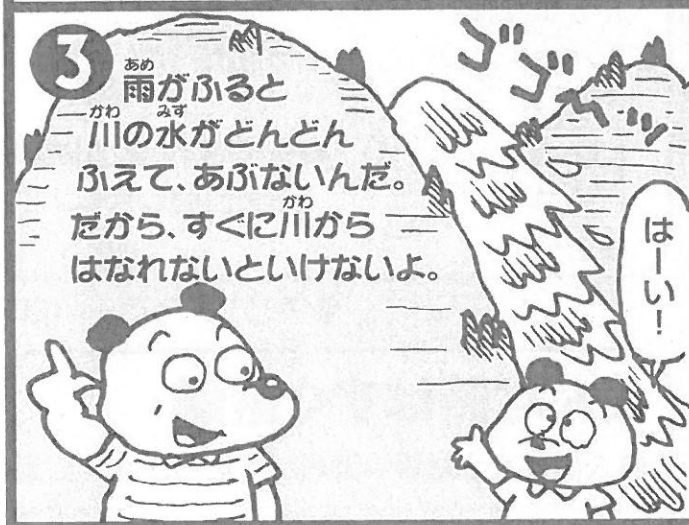 3
雨がふると
川の水がどんどん
ふえて、あぶないんだ。
だから、すぐに川から
はなれないといけないよ。
ゴゴーッ
はーい!